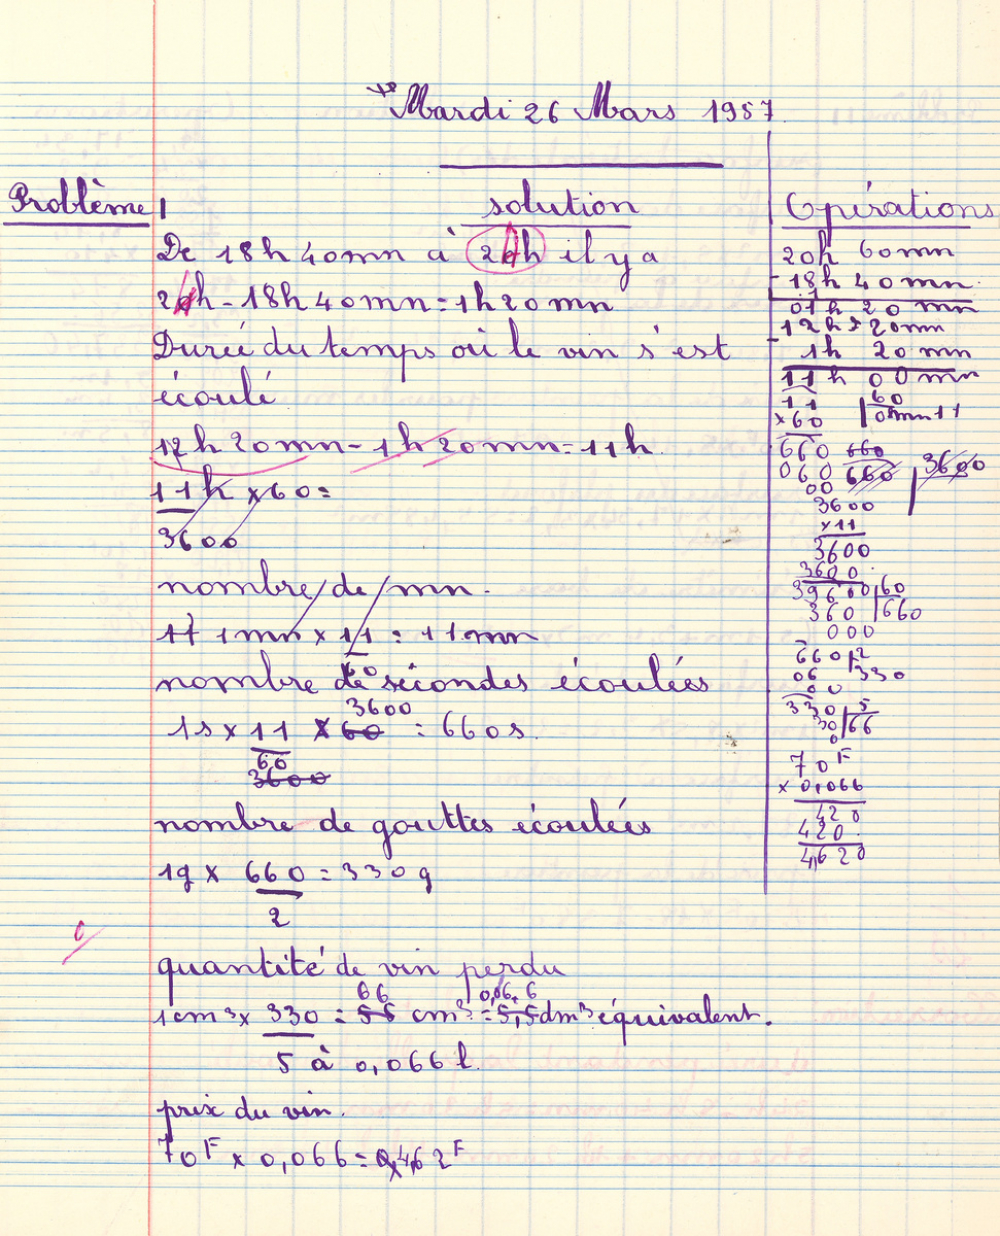 Mardi 26 Mars 1957
Problème
solution
De 18h 40mn à 24h il y a
24h - 18h 40mn = 1h 20mn
Durée du temps où le vin s'est
écoulé
12h 20mn - 1h 20mn = 11h.
11h x 60 =
3600
nombre de mn.
1mn x 11 = 11mn
nombre de secondes écoulées
3600
1s x 11 x 60 = 660s.
60
3600
nombre de gouttes écoulées
1g x 660 = 330g
2
quantité de vin perdu
66
1cm³ x 330 = 55 cm³ = 5,5dm³ équivalent.
5 à 0,066 l.
prix du vin.
70F x 0,066 = 4,62F
Opérations
20h 60mn
- 18h 40mn
01h 20mn
12h 20mn
- 1h 20mn
11h 00mn
11
60
x 60
660
660
3600
060
660
00
3600
x 11
3600
3600
39600
60
360
660
000
660
2
06
330
00
330
5
30
66
0
70F
x 0,066
420
420
4,620